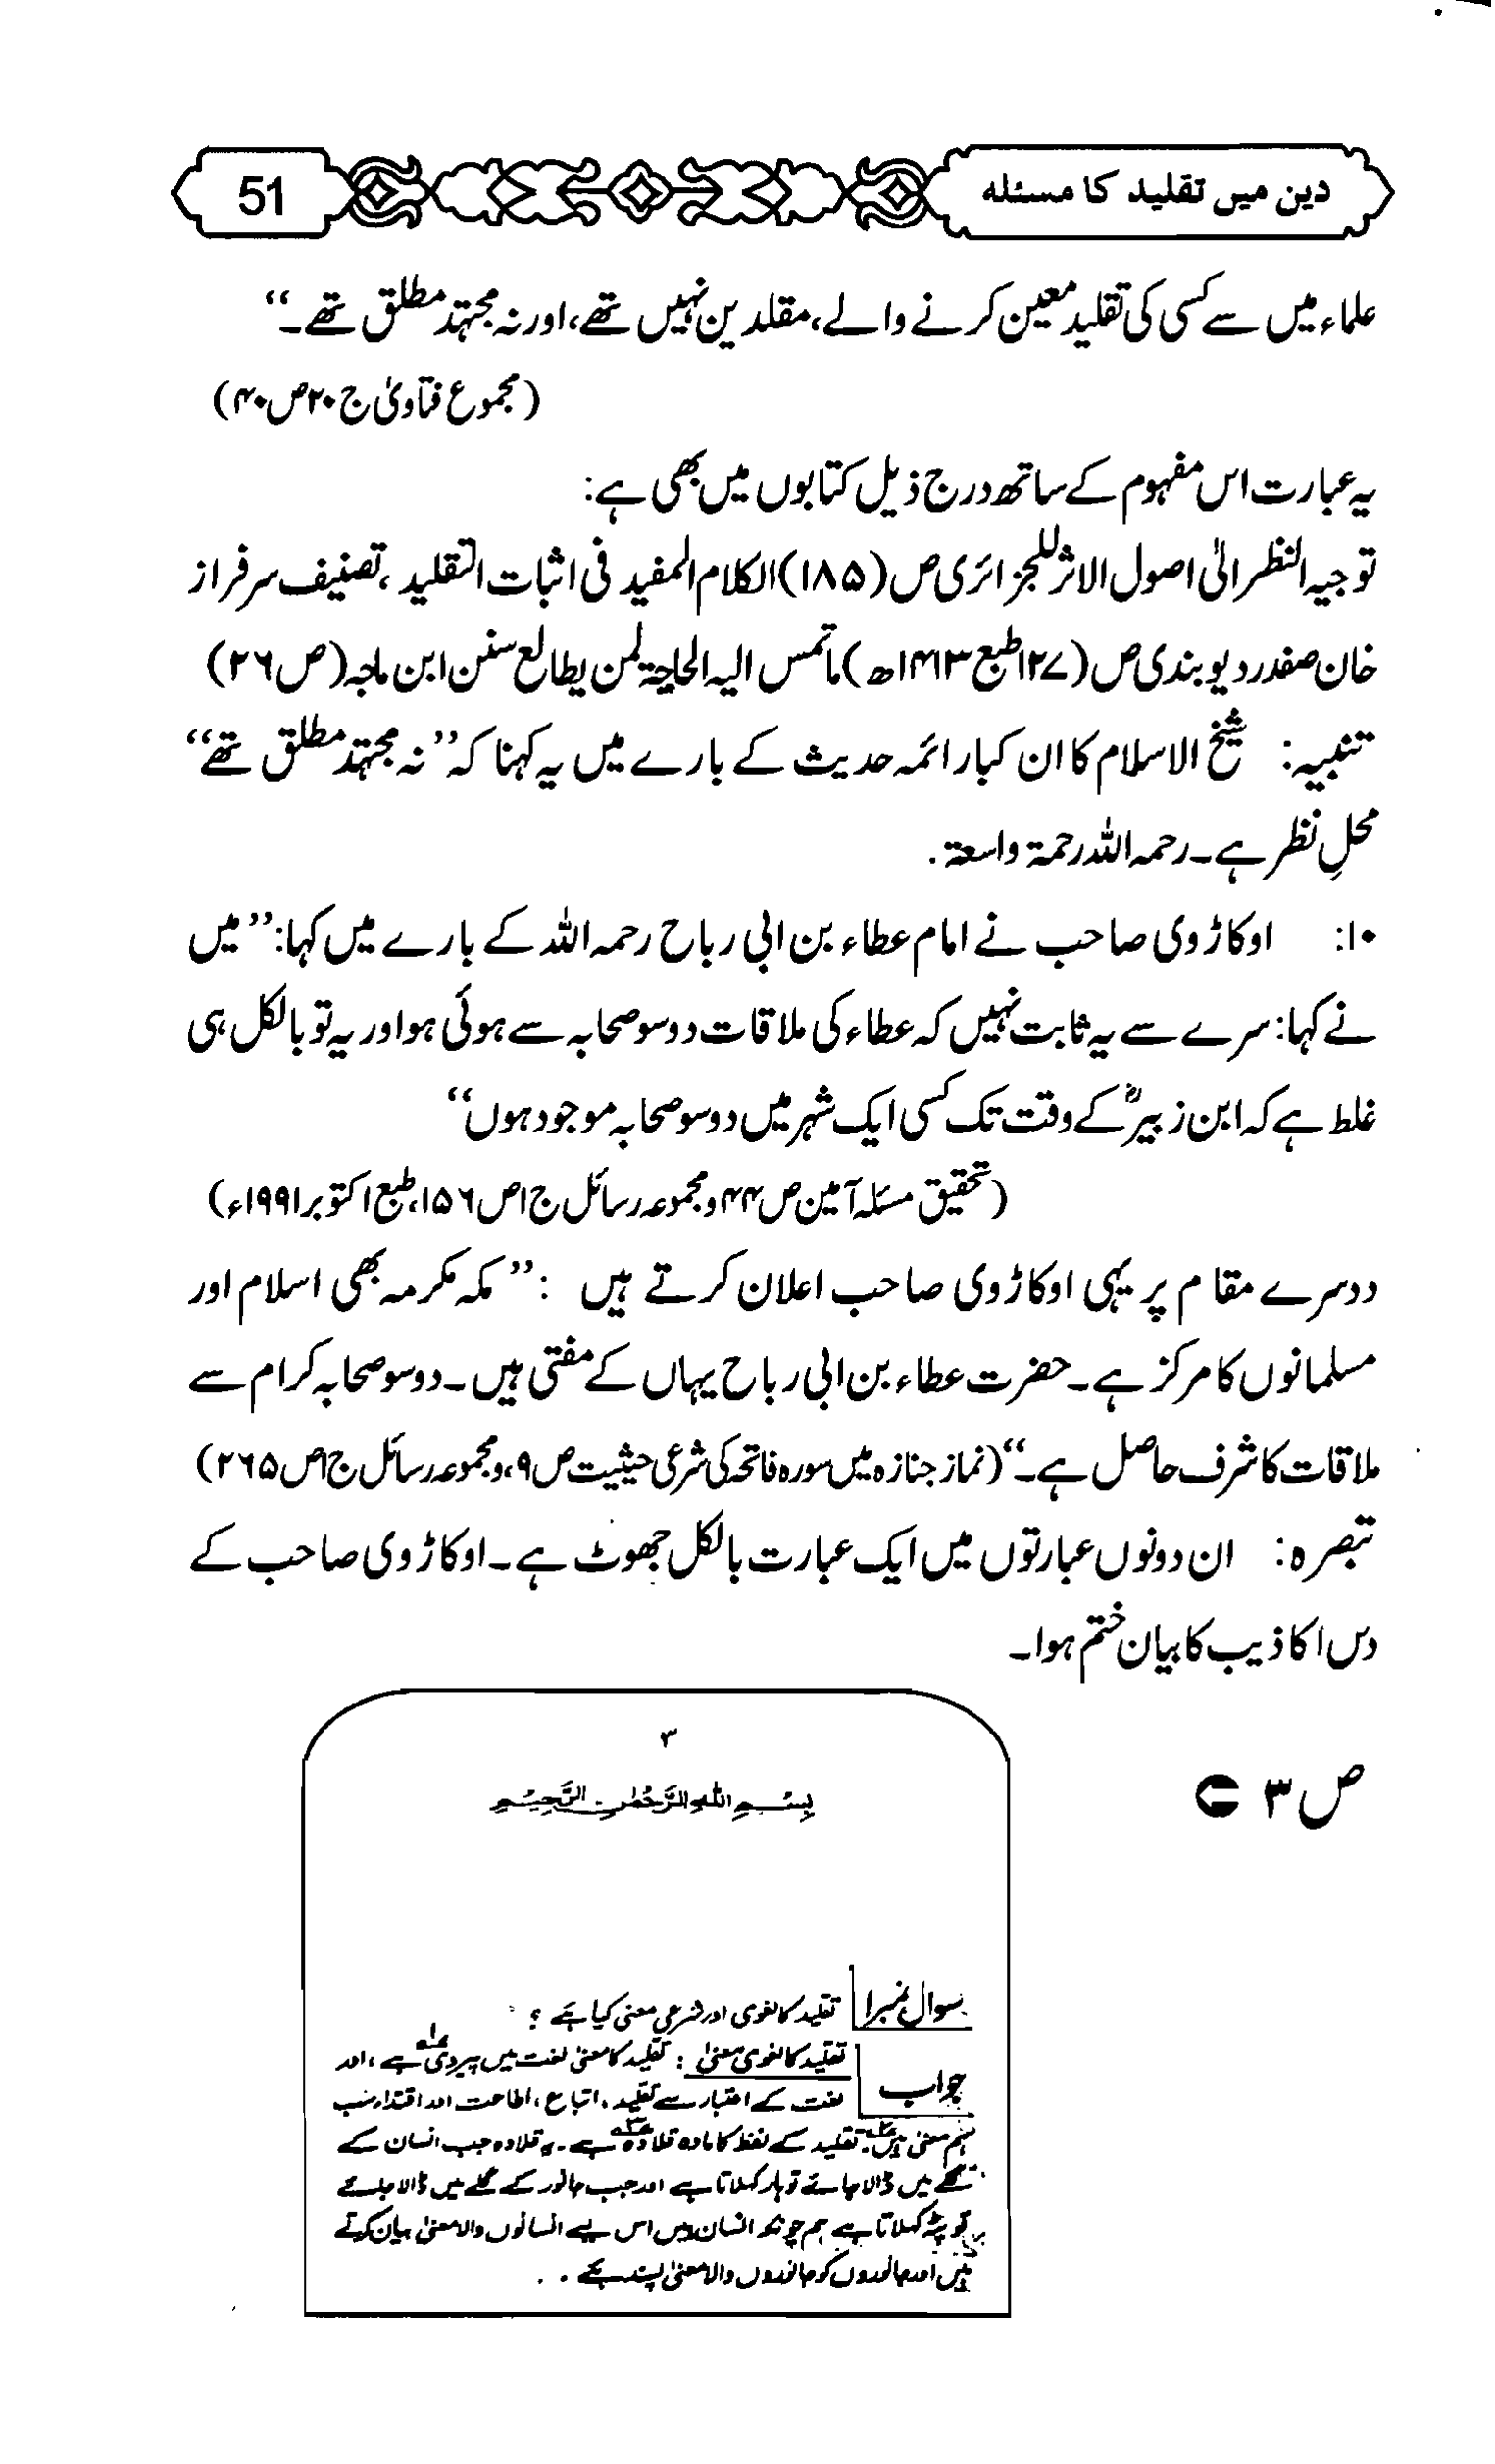 دین میں تقلید کا مسئلہ
51
علماء میں سے کسی کی تقلید معین کرنے والے، مقلدین نہیں تھے، اور نہ مجتہد مطلق تھے۔‘‘
(مجموع فتاویٰ ج ۲۰ ص ۴۰)
یہ عبارت اس مفہوم کے ساتھ درج ذیل کتابوں میں بھی ہے:
توجیہ النظر الیٰ اصول الاثر للجزائری ص (۱۸۵) الکلام المفید فی اثبات التقلید ، تصنیف سرفراز
خان صفدر دیوبندی ص (۱۲۷ طبع ۱۴۱۳ھ) ماتمس الیہ الحاجۃ لمن یطالع سنن ابن ماجہ (ص ۲۶)
تنبیہ: شیخ الاسلام کا ان کبار ائمہ حدیث کے بارے میں یہ کہنا کہ ’’نہ مجتہد مطلق تھے‘‘
محلِ نظر ہے۔ رحمہ اللہ رحمۃ واسعۃ .
۱۰: اوکاڑوی صاحب نے امام عطاء بن ابی رباح رحمہ اللہ کے بارے میں کہا: ’’میں
نے کہا: سرے سے یہ ثابت نہیں کہ عطاء کی ملاقات دو سو صحابہ سے ہوئی ہو اور یہ تو بالکل ہی
غلط ہے کہ ابن زبیرؓ کے وقت تک کسی ایک شہر میں دو سو صحابہ موجود ہوں‘‘
(تحقیق مسئلہ آمین ص ۴۴ و مجموعہ رسائل ج ۱ ص ۱۵۶، طبع اکتوبر ۱۹۹۱ء)
دوسرے مقام پر یہی اوکاڑوی صاحب اعلان کرتے ہیں : ’’مکہ مکرمہ بھی اسلام اور
مسلمانوں کا مرکز ہے۔ حضرت عطاء بن ابی رباح یہاں کے مفتی ہیں۔ دو سو صحابہ کرام سے
ملاقات کا شرف حاصل ہے۔‘‘ (نماز جنازہ میں سورہ فاتحہ کی شرعی حیثیت ص ۹، و مجموعہ رسائل ج ۱ ص ۲۶۵)
تبصرہ: ان دونوں عبارتوں میں ایک عبارت بالکل جھوٹ ہے۔ اوکاڑوی صاحب کے
دس اکاذیب کا بیان ختم ہوا۔
ص ۳
۳
بِسْمِ اللهِ الرَّحْمٰنِ الرَّحِيْمِ
سوال نمبر۱ تقلید کا لغوی اور شرعی معنی کیا ہے ؟
جواب تقلید کا لغوی معنیٰ : تقلید کا معنی لغت میں پیروی ہے ، اور
لغت کے اعتبار سے تقلید ، اتباع ، اطاعت اور اقتداء سب
ہم معنی ہیں۔ تقلید کے لفظ کا مادہ قلادہ ہے۔ یہ قلادہ جب انسان کے
گلے میں ڈالا جائے تو ہار کہلاتا ہے اور جب جانور کے گلے میں ڈالا جائے
تو پٹہ کہلاتا ہے ہم چونکہ انسان ہیں اس لیے انسانوں والا معنیٰ بیان کرتے
ہیں اور جانوروں کو جانوروں والا معنیٰ پسند ہے ۔ ۔